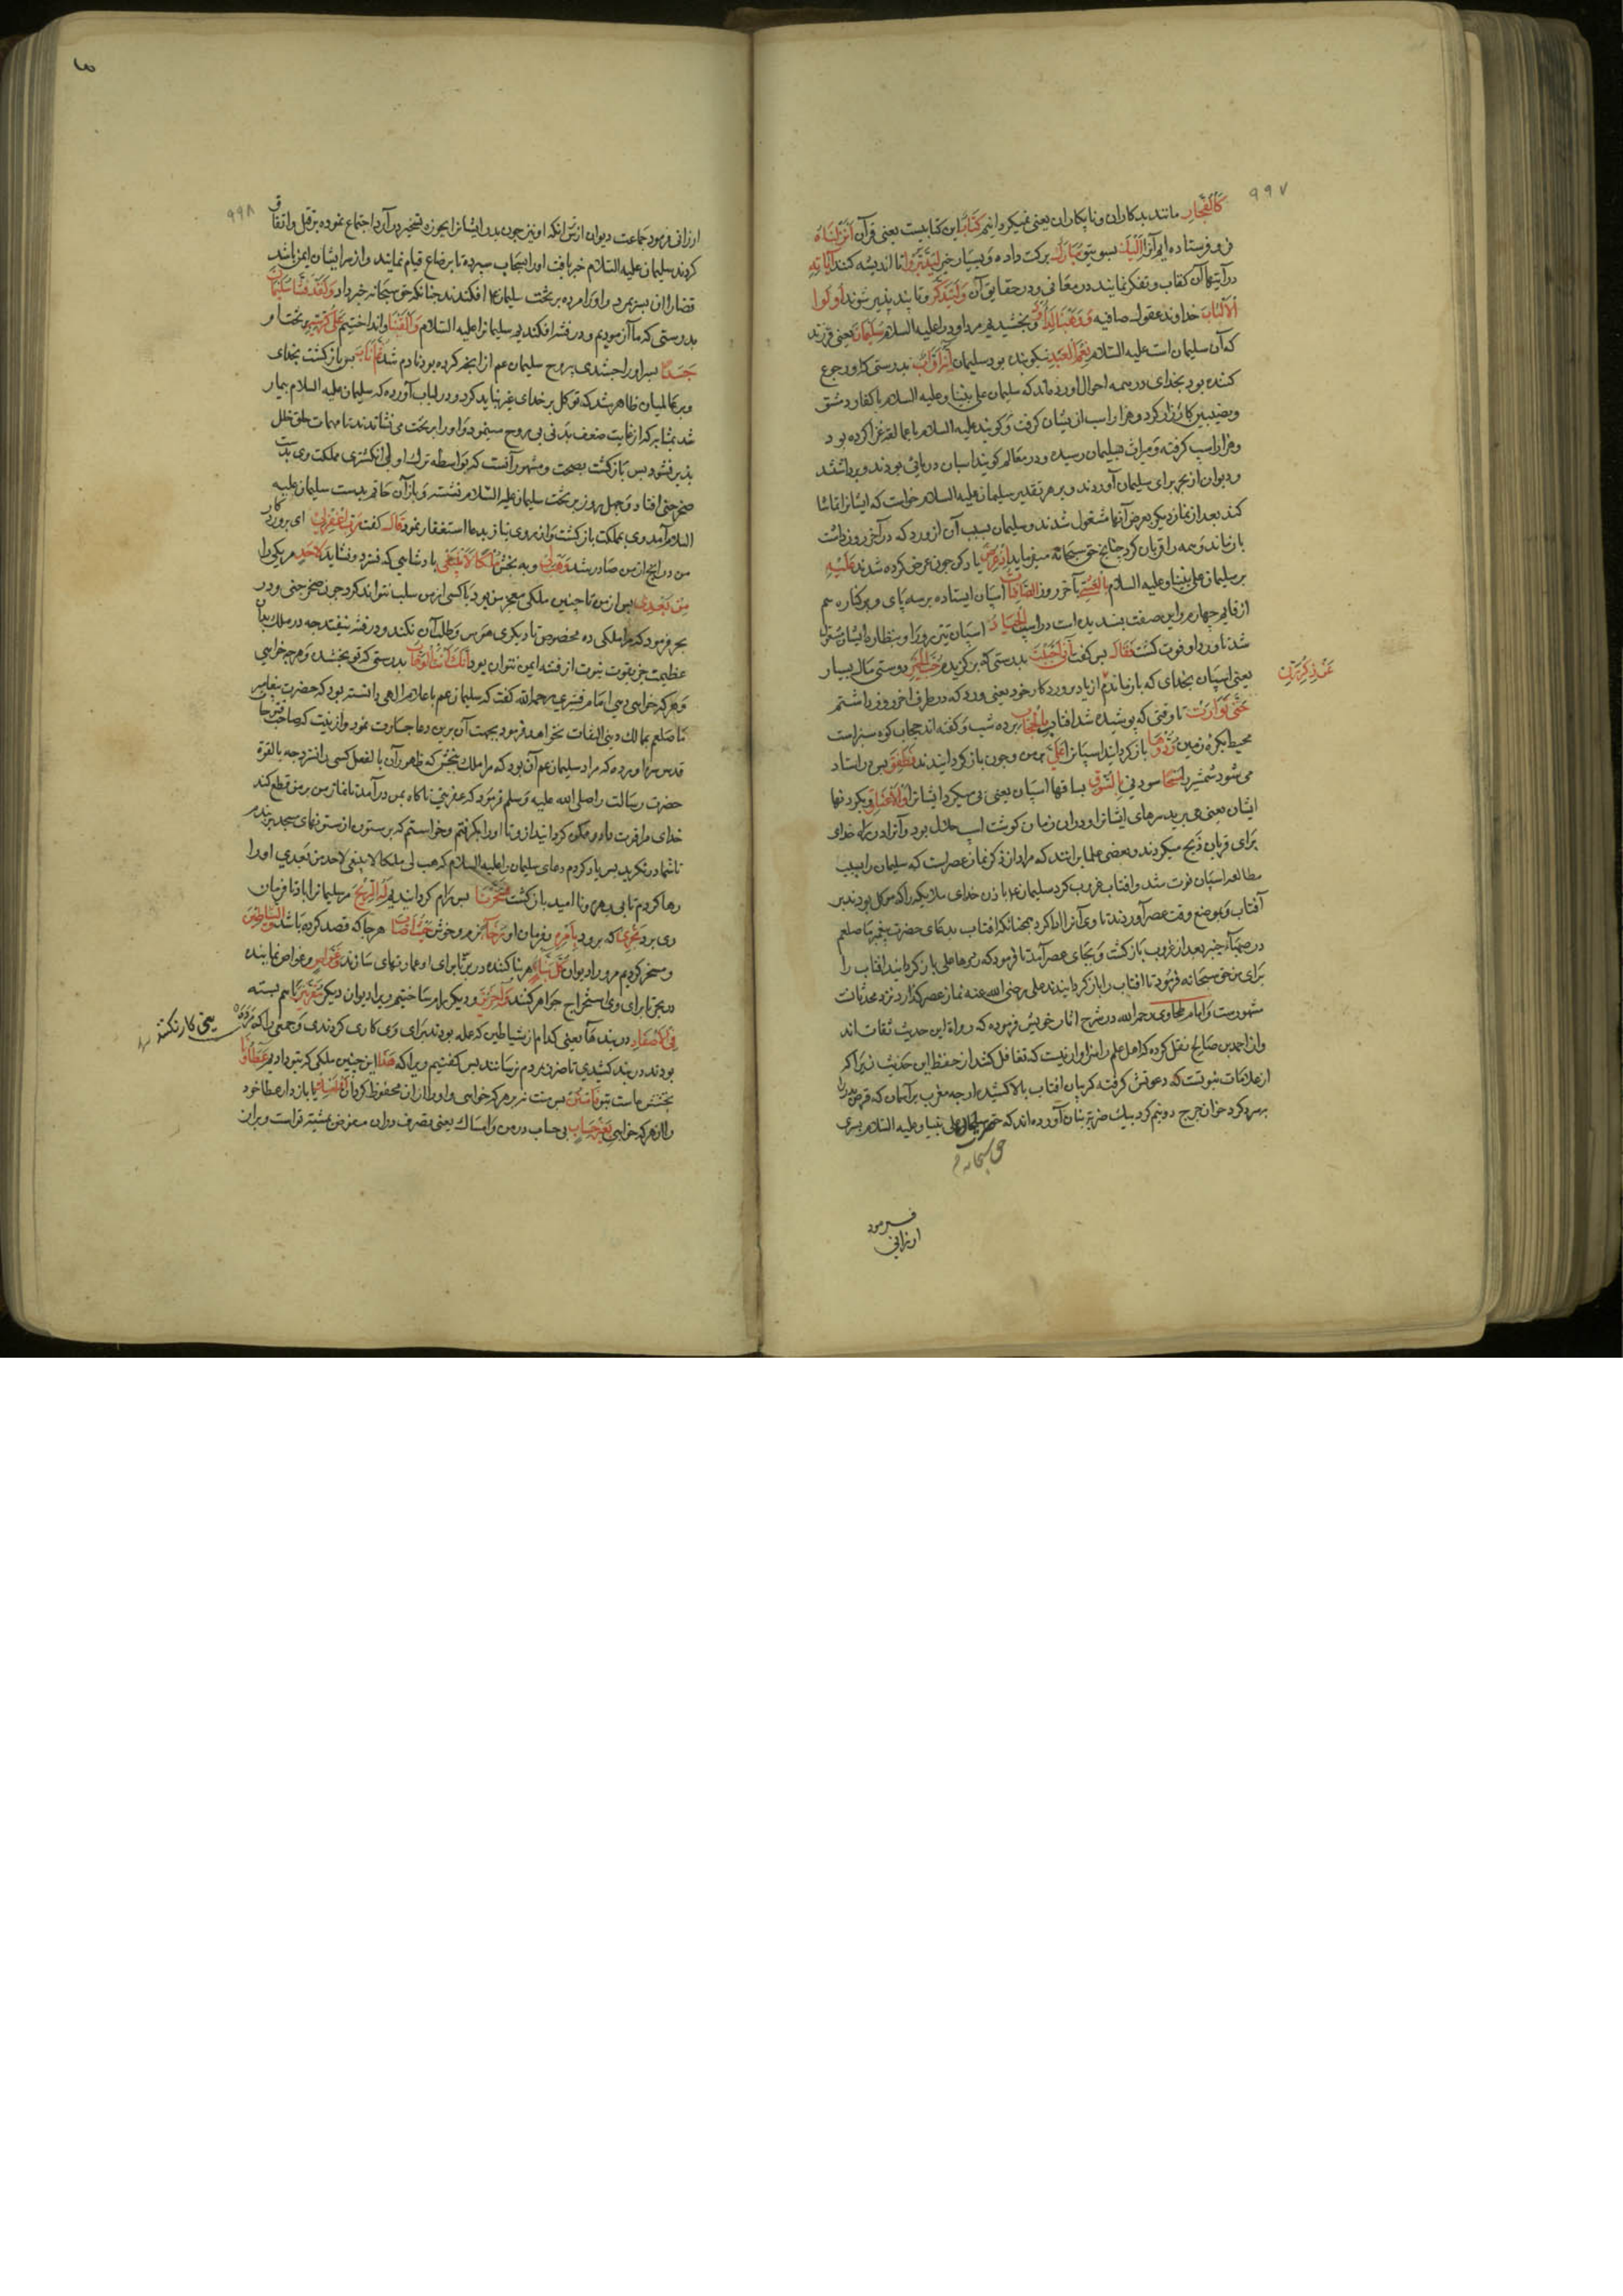 ۹۹۷
كَالْفُجَّارِ مانند بدکاران و نابکاران یعنی نمیکردانیم کِتَابٌ این کتابیست یعنی قرآن اَنْزَلْنَاهُ
فروفرستاده ایم آنرا اِلَیْكَ بسوی تو مُبَارَكٌ برکت داده و بسیار خیر لِیَدَّبَّرُوا تا اندیشه کنند آیَاتِهِ
در آیتهای آن کتاب و تفکر نمایند در معانی و در حقایق آن وَلِیَتَذَكَّرَ و تا پند پذیر شوند اُولُوا
الْاَلْبَابِ خداوند عقول صافیه وَوَهَبْنَا لِدَاوُدَ و بخشیدیم مر داود را علیه السلام سُلَیْمَانَ یعنی فرزند
که آن سلیمان است علیه السلام نِعْمَ الْعَبْدُ نیکو بنده بود سلیمان اِنَّهُ اَوَّابٌ بدرستی که او رجوع
کننده بود بخدای در همه احوال آورده‌اند که سلیمان علی نبینا و علیه السلام با کفار دمشق
و نصیبین کارزار کرد و هزار اسب از یشان کرفت و کویند علیه السلام با عمالقه غزا کرده بود
و هزار اسب کرفته و میراث بسلیمان رسیده و در معالم کویند اسبان دریائی بودند و پر داشتند
و دیوان از بحر برای سلیمان آوردند و بر هر تقدیر سلیمان علیه السلام خواست که ایشانرا تماشا
کند بعد از نماز دیکر بعرض آنها مشغول شدند و سلیمان بسبب آن از ورد که در آخر روز داشت
بازماند و همه را قربان کرد چنانچ حق سبحانه میفرماید اِذْ عُرِضَ یاد کن چون عرض کرده شدند عَلَیْهِ
بر سلیمان علی نبینا و علیه السلام بِالْعَشِیِّ بآخر روز الصَّافِنَاتُ اسپان ایستاده بر سه پای و بر کناره سم
از قایم چهارم و این صفت پسندیده است در اسپ الْجِیَادُ اسپان تیز رو و او بنظاره ایشان مشغول
شد تا ورد او فوت کشت فَقَالَ پس کفت اِنِّی اَحْبَبْتُ بدرستی که برکزیدم حُبَّ الْخَیْرِ دوستی مال بسیار
عَنْ ذِكْرِ رَبِّی
یعنی اسپان بخدای که بازماندم از یاد پروردکار خود یعنی ورد که در طرف آخر روز داشتم
حَتَّى تَوَارَتْ تا وقتی که پوشیده شد افتاب بِالْحِجَابِ پرده شب و کفته اند حجاب کوه سبز است
محیط بکره زمین رُدُّوهَا باز کردانید اسپانرا عَلَیَّ بر من و چون باز کردانیدند فَطَفِقَ پس در استاد
می سُود شمشیر را مَسْحًا سودنی بِالسُّوقِ بساقهاء اسپان یعنی پی میکرد ایشانرا وَالْاَعْنَاقِ و بکردنها
ایشان یعنی می برید سرهای ایشانرا و دران زمان کوشت اسپ حلال بود و آنرا در راه خدای
برای قربان ذبح میکردند و بعضی علما برانند که مراد از ذکر نماز عصر است که سلیمان را بسبب
مطالعه اسپان فوت شد و افتاب غروب کرد سلیمان عم باذن خدای ملایکه را که موکل بودند بر
آفتاب و بوضع وقت عصر آوردند تا وی آنرا ادا کرد همچنانکه افتاب بدعای حضرت پیغمبر ما صلعم
در صهباء خیبر بعد از غروب بازکشت و بجای عصر آمد تا فرمود که رد ها علی باز کردانید افتاب را
برای من حق سبحانه فرمود تا افتاب را باز کردانیدند علی رضی الله عنه نماز عصر کذارد نزد محدثان
مشهورست و امام طحاوی رحمه الله در شرح اثار خویش فرموده که رواة این حدیث ثقات اند
و از احمد بن صالح نقل کرده که اهل علم را سزاوار نیست که تغافل کنند از حفظ این حدیث زیرا که
از علامات نبوتست که دعوتش کرفته کریبان افتاب بالا کشید از چه مغرب بر آسمان که قرص بدر را
بهره کرد خوان چرخ دو نیم کرد بیك ضربه بنان آورده اند که حق سبحانه سلیمان علی نبینا و علیه السلام پسری
فرمود
ارزانی
۹۹۸
ارزانی فرمود جماعت دیوان از ترس انکه او نیز چون پدر ایشانرا بحوزه تسخیر در آرد اجتماع نموده بر قتل و اتفاق
کردند سلیمان علیه السلام خبر یافت او را بسحاب سپرده تا بر ضاع قیام نمایند و از سر ایشان ایمن باشد
قضا را ان پسر بمرد و او را مرده بر تخت سلیمان عم افکندند چنانکه حق سبحانه خبر داد وَلَقَدْ فَتَنَّا سُلَیْمَانَ
بدرستی که ما آزمودیم و در فتنه افکندیم سلیمانرا علیه السلام وَاَلْقَیْنَا و انداختیم عَلَى كُرْسِیِّهِ بر تخت او
جَسَدًا پسر او را جسدی بی روح سلیمان عم از انچه کرده بود نادم شد ثُمَّ اَنَابَ پس بازکشت بخدای
و بر عالمیان ظاهر شد که توکل بر خدای غیر نباید کرد و در لباب آورده که سلیمان علیه السلام بیمار
شد بمثابه که از غایت ضعف بدنی بی روح مینمود و او را بر تخت می نشاندند تا مهمات خلق خلل
پذیر نشود پس بازکشت بصحت و مشهور آنست که بواسطه ترك اولی انکشتری مملکت وی بدست
صخر جنی افتاد و چهل روز بر تخت سلیمان علیه السلام نشست و باز آن خاتم بدست سلیمان علیه
السلام آمد وی بمملکت بازکشت و از روی نیاز بدعا استغفار نمود قَالَ کفت رَبِّ اغْفِرْ لِی ای پروردکار
من در انچ از من صادر شد وَهَبْ لِی و به بخش مُلْكًا لَا یَنْبَغِی پادشاهی که نسزد و نشاید لِاَحَدٍ مر یکی را
مِنْ بَعْدِی پس از من تا چنین ملکی معجز من بود یا کسی از من سلب نتواند کرد چون صخر جنی و در
بحر فرمود که مرا ملکی ده مخصوص تا دیکری هوس و طلب آن نکند و در فتنه نیفتد چه در ملك بدین
عظیمت جز بقوت نبوت از فتنه ایمن نتوان بود اِنَّكَ اَنْتَ الْوَهَّابُ بدرستی که تو بخشنده هر چه خواهی
و هر که خواهی دهی امام قشیری رحمه الله کفت که سلیمان عم باعلام الهی دانسته بود که حضرت پیغامبر
ما صلعم بممالك دینی التفات نخواهد فرمود بجهت آن برین دعا جسارت نمود
قدس سره اورده که مراد سلیمان عم آن بود که مرا ملك بخش که ظهور آن بالفعل کسی را نسزد چه بالقوة
حضرت رسالت را صلی الله علیه و سلم فرمود که عفریتی ناکاه بمن در آمد تا نماز من بر من قطع کند
خدای مرا قوت داد و ممکن کردانید از و تا او را بکرفتم و خواستم که بر ستون از ستونهای مسجد بندم
تا شما در نکرید پس یاد کردم دعای سلیمان را علیه السلام که هب لی ملکا لا ینبغی لاحد من بعدی او را
رها کردم تا بی بهره و نا امید بازکشت فَسَخَّرْنَا پس رام کردانیدیم لَهُ الرِّیحَ مر سلیمانرا باد تا فرمان
وی برد تَجْرِی که برود بِاَمْرِهِ بفرمان او رُخَاءً نرم و خوش حَیْثُ اَصَابَ هر جا که قصد کرده باشد وَالشَّیَاطِینَ
و مسخر کردیم مر ورا دیوان كُلَّ بَنَّاءٍ هر بنا کننده در بر تا برای او عمارتهای سازند وَغَوَّاصٍ و غواص نماینده
در بحر تا برای وی استخراج جواهر کنند وَآخَرِینَ و دیکر رام ساختیم ویرا دیوان دیکر مُقَرَّنِینَ با هم بسته
فِی الْاَصْفَادِ در بندها یعنی کدام از شیاطین که عمله بودند برای وی کاری کردندی و جمعی را که مرده
بودند در بند کشیدی تا ضرر بمردم نرسانند پس کفتیم ویرا که هَذَا این چنین ملکی که بتو دادیم عَطَاؤُنَا
بخشش ماست بتو فَامْنُنْ پس منت نه بر هر که خواهی و او را از ان محفوظ کردان اَوْ اَمْسِكْ یا باز دار عطا خود
را از هر که خواهی بِغَیْرِ حِسَابٍ بی حساب در من و امساك یعنی تصرف در ان مفوض بمشیة تراست و بران